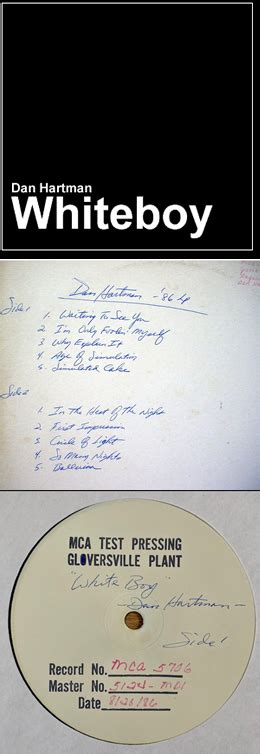 Dan Hartman
Whiteboy
Dan Hartman - '86 Lp
Side 1
1. Waiting To See You
2 I'm Only Foolin' Myself
3 Why Explain It
4 Age Of Simulation
5. Simulated Cakes
Side 2
1. In The Heat Of The Night
2. First Impression
3. Circle Of Light
4. So Many Nights
5.
MCA TEST PRESSING
GLOVERSVILLE PLANT
"White Boy"
- Dan Hartman -
Side 1
Record No. MCA 5706
Master No.
Date 8/26/86